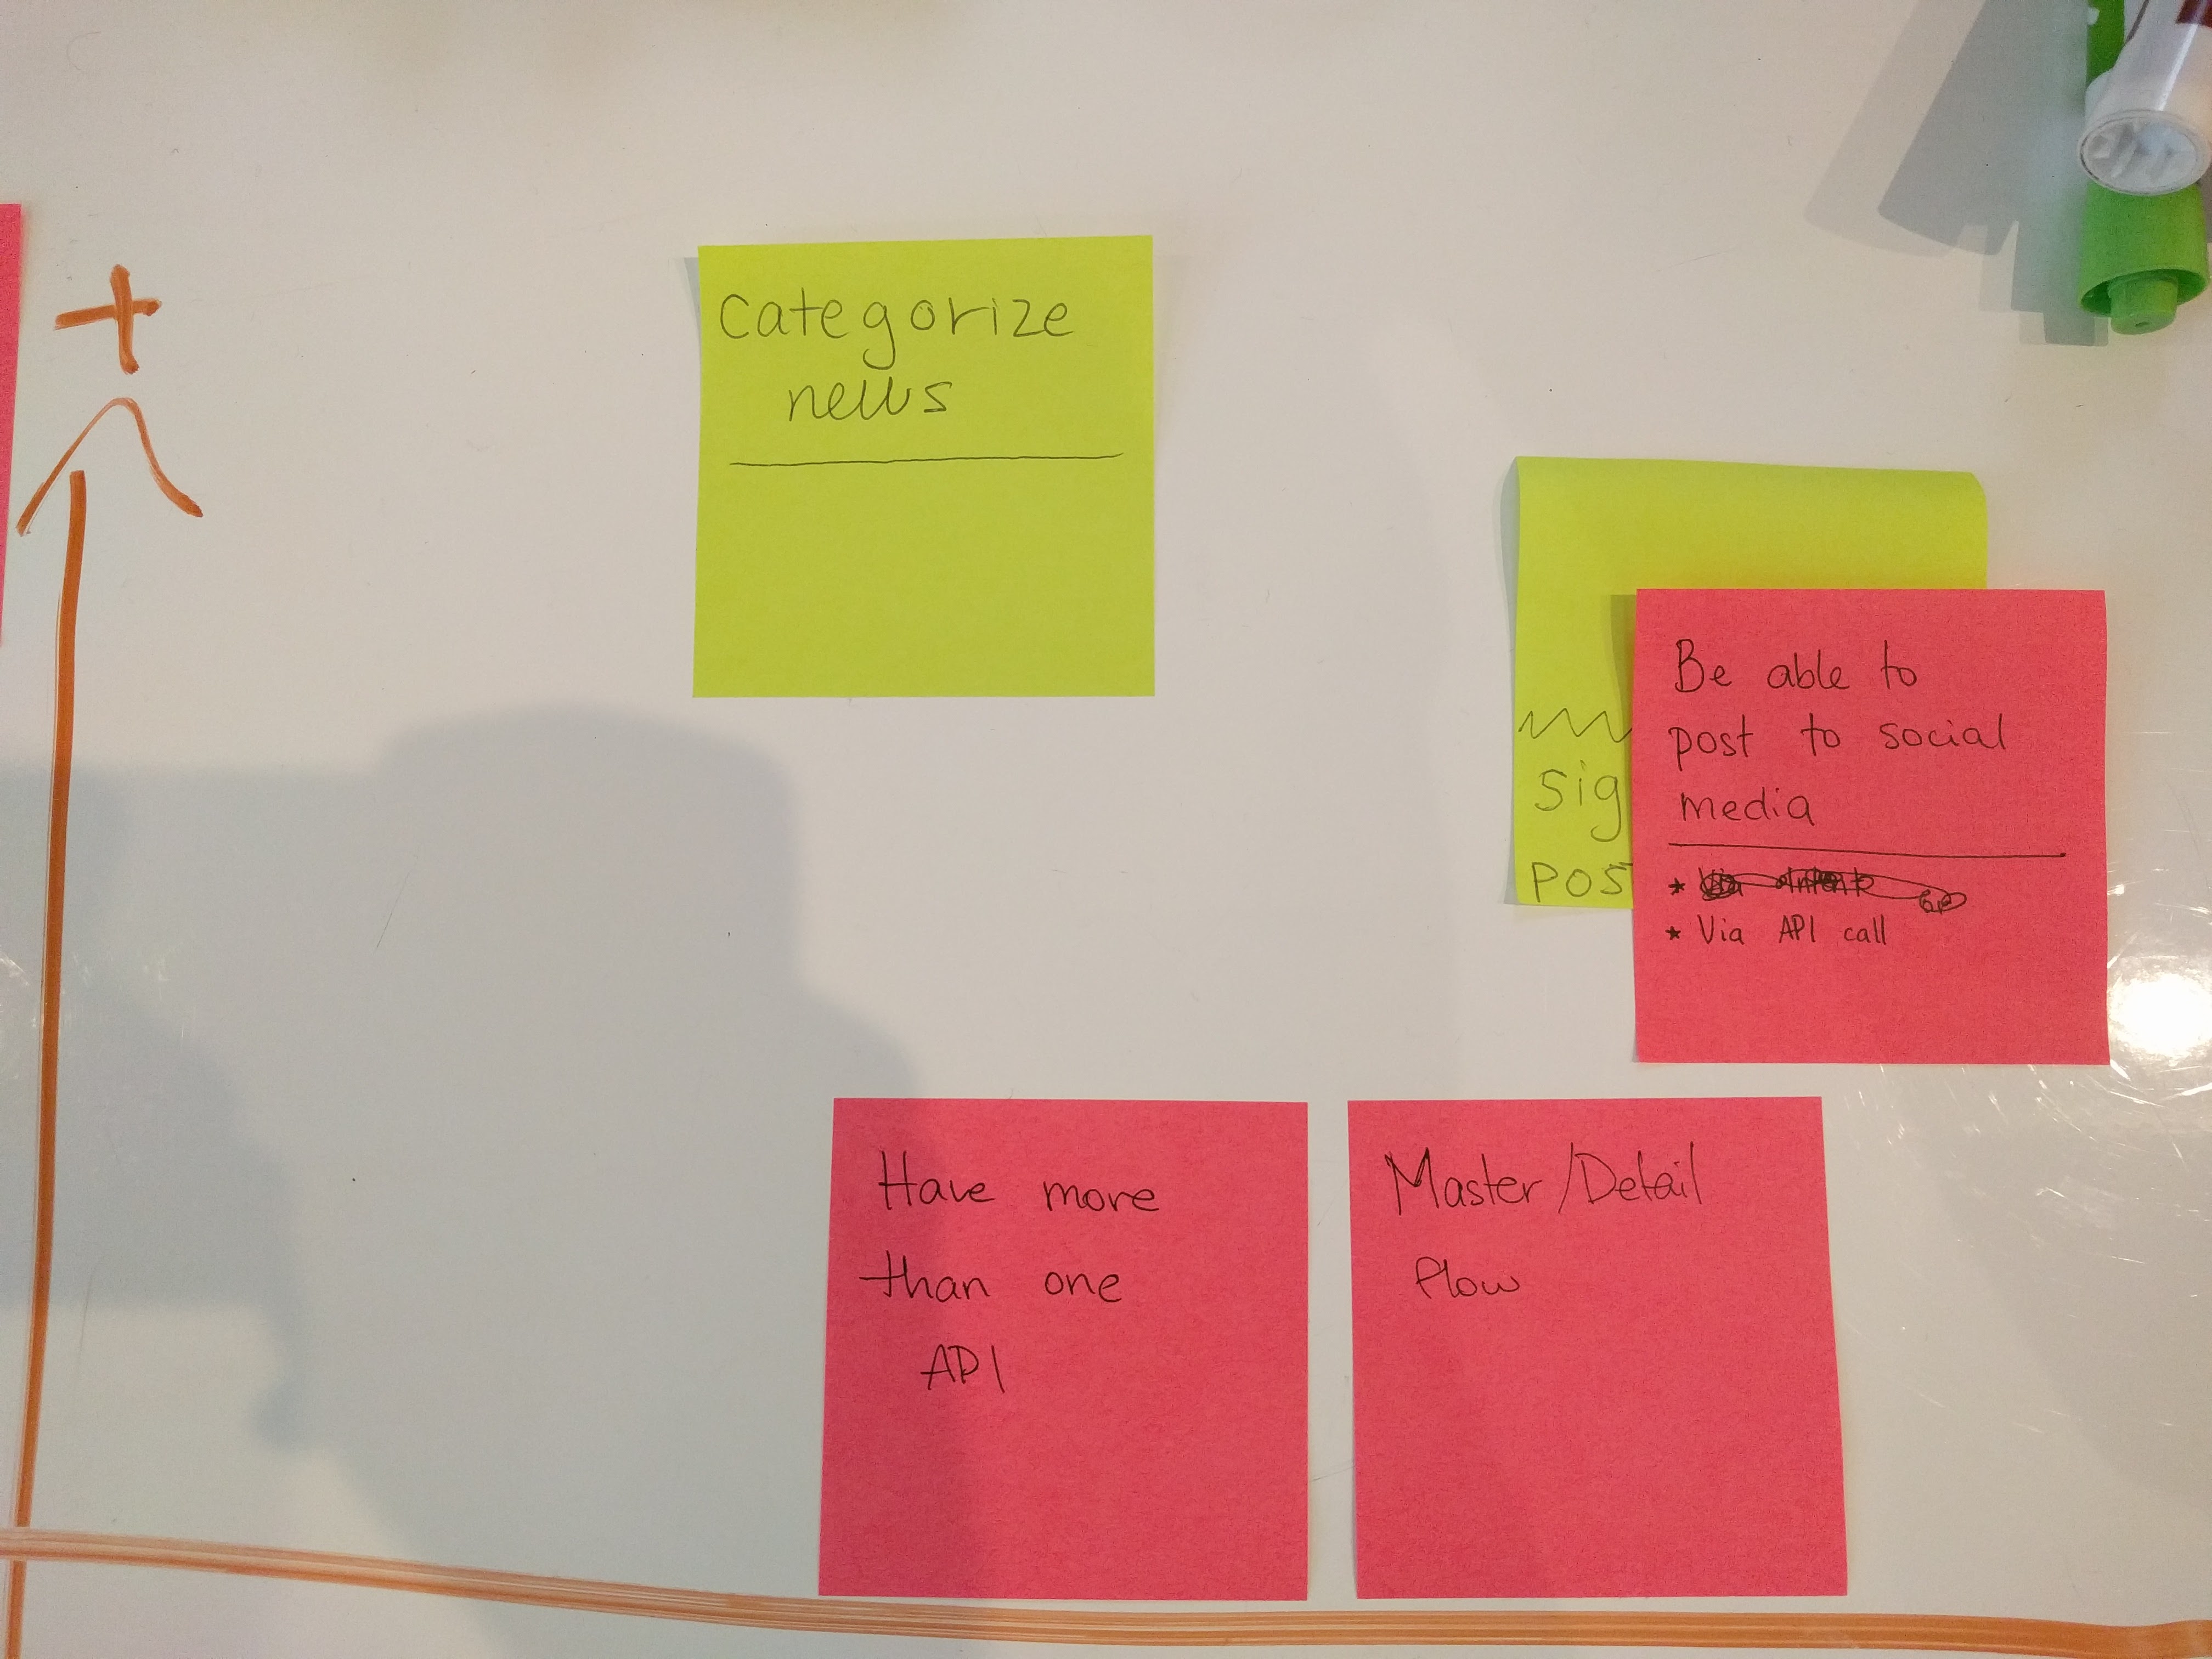 +
Categorize
news
sig
pos
Be able to
post to social
media
* Via Intent
* Via API call
Have more
than one
API
Master/Detail
flow